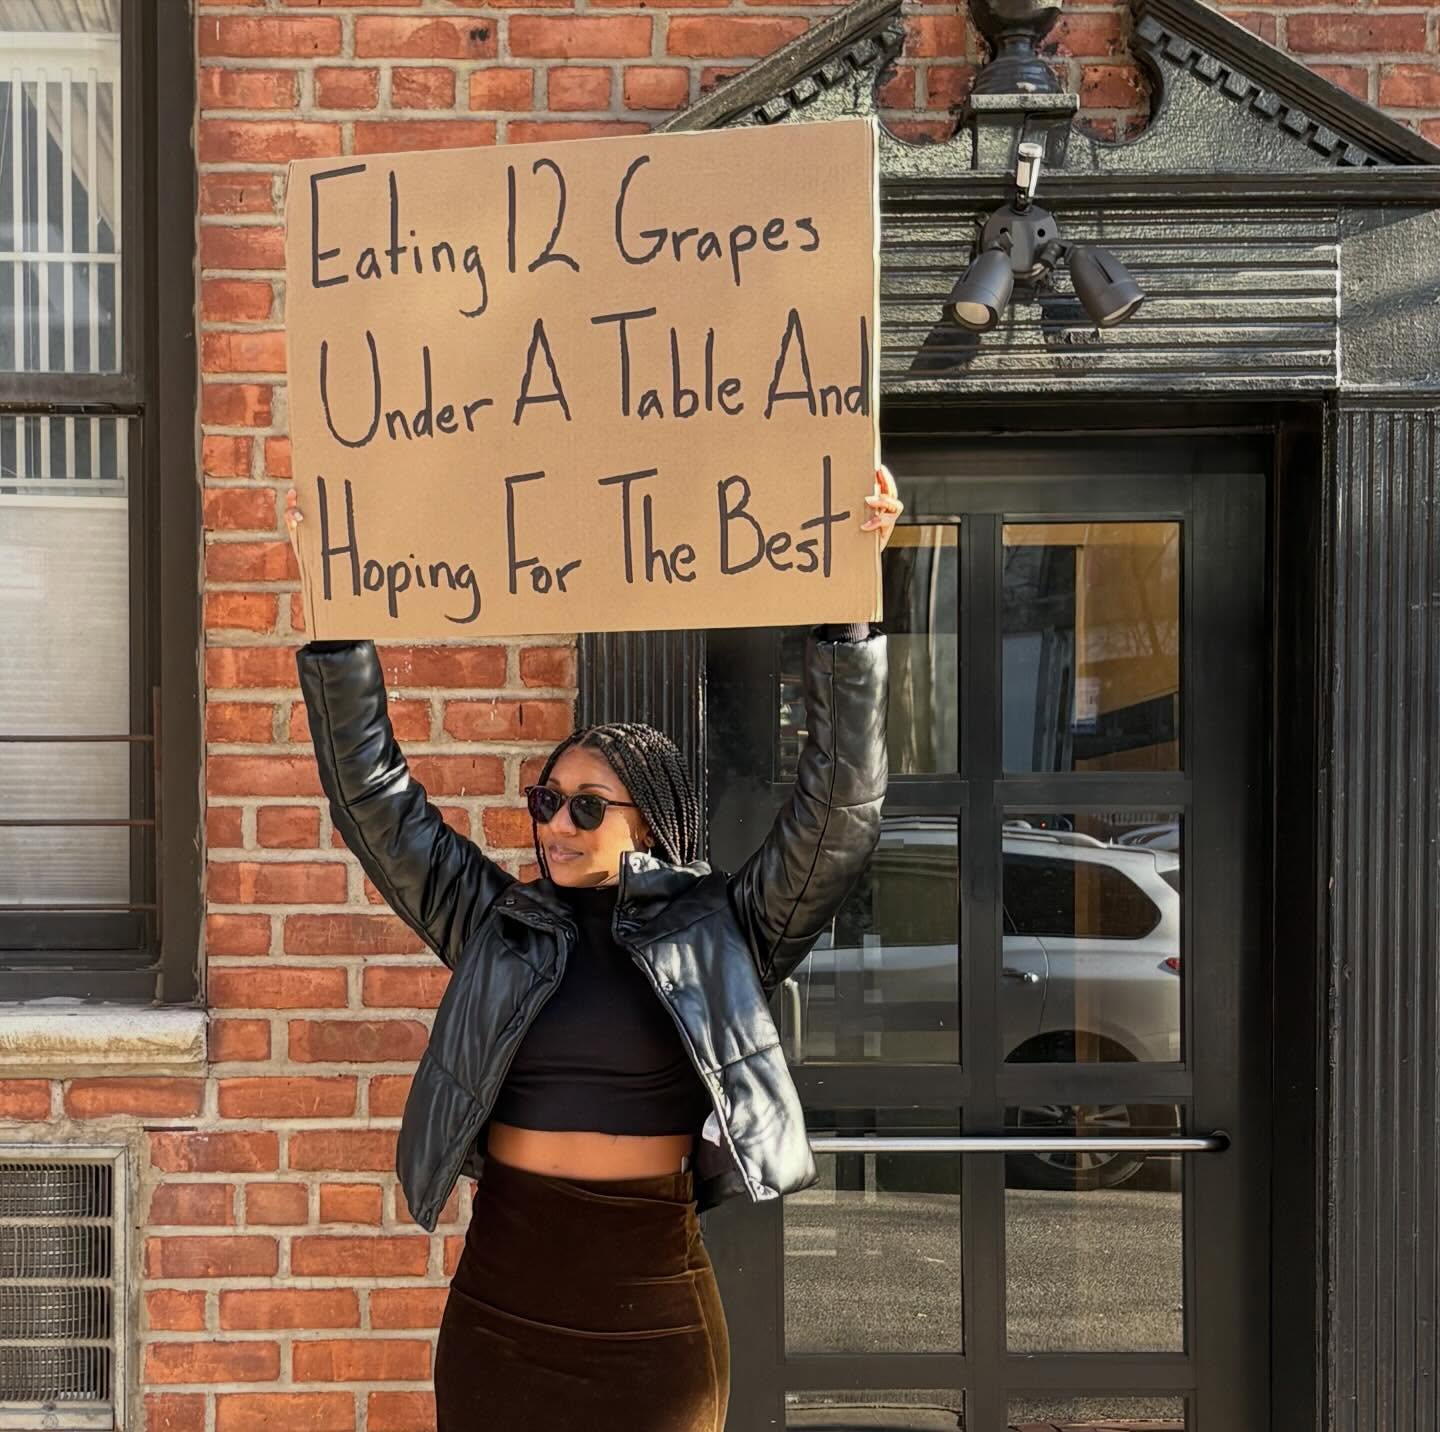 Eating 12 Grapes
Under A Table And
Hoping For The Best